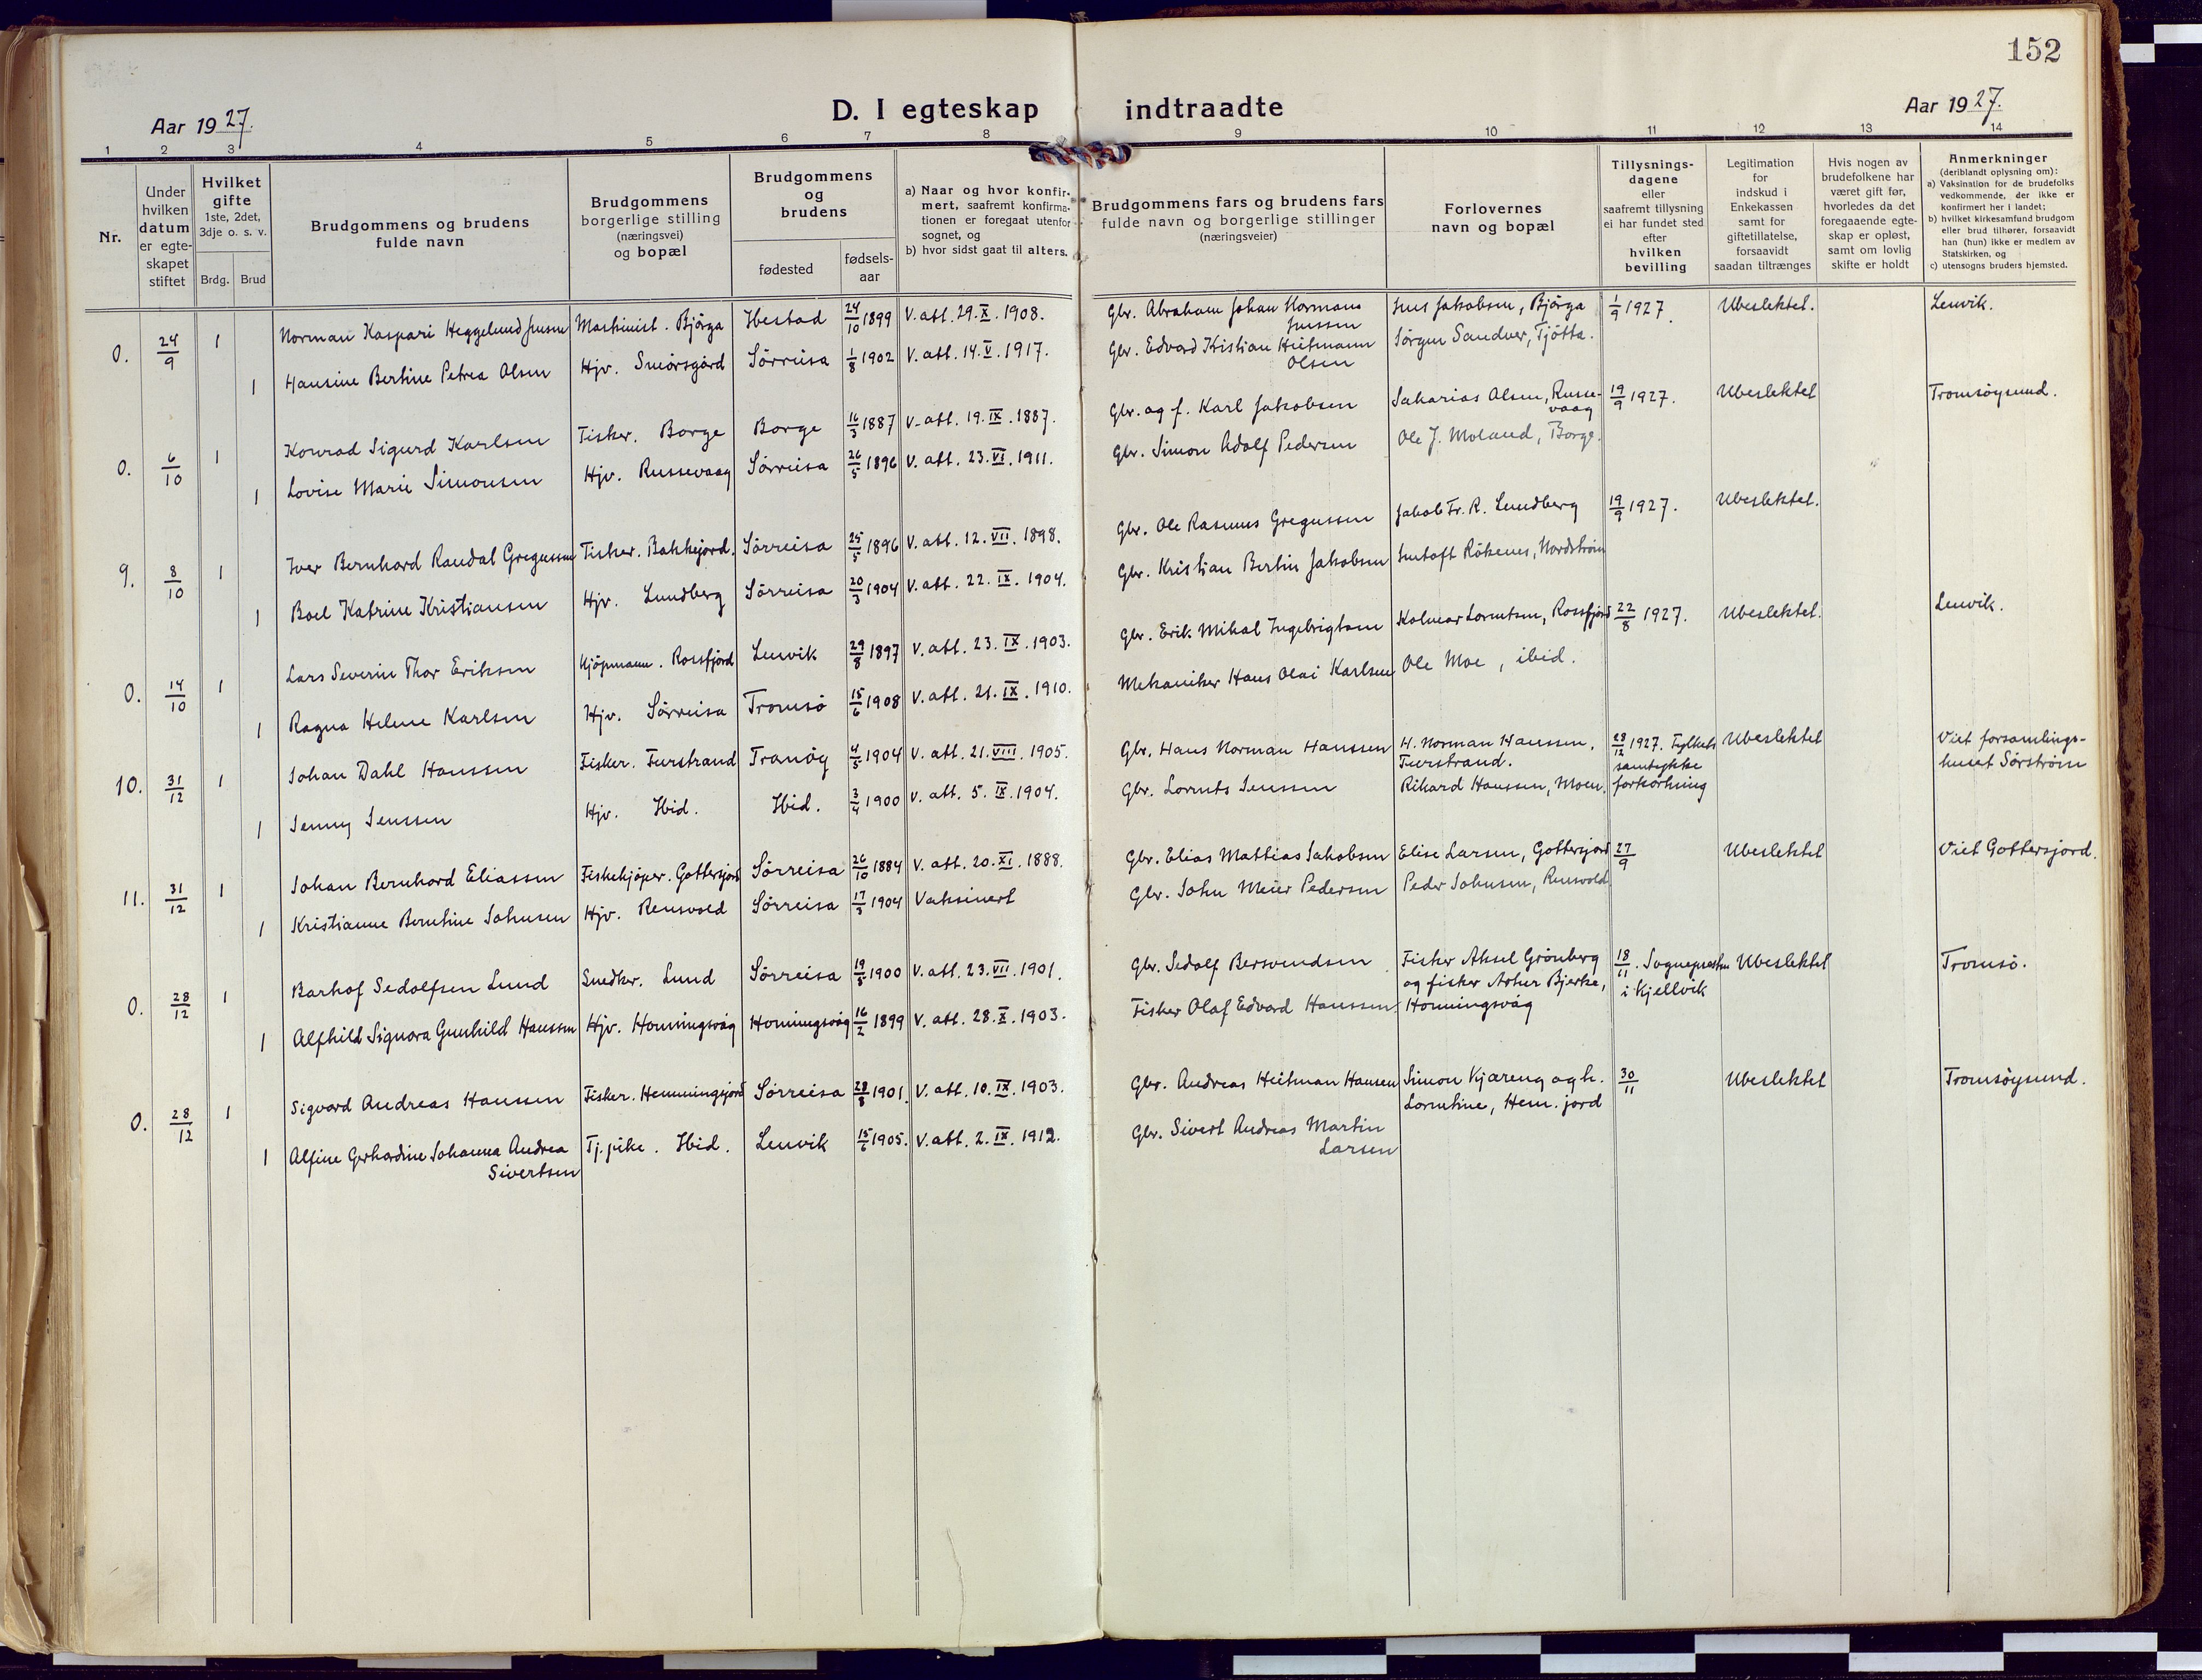 152
D. I egteskap indtraadte
Aar 1927.
Aar 1927.
1 2 3 4 5 6 7 8 9 10 11 12 13 14
Nr.
Under hvilken datum er egteskapet stiftet
Hvilket gifte 1ste, 2det, 3dje o. s. v.
Brdg. Brud
Brudgommens og brudens fulde navn
Brudgommens borgerlige stilling (næringsvei) og bopæl
Brudgommens og brudens
fødested
fødsels-aar
a) Naar og hvor konfirmert, saafremt konfirmationen er foregaat utenfor sognet, og
b) hvor sidst gaat til alters.
Brudgommens fars og brudens fars fulde navn og borgerlige stillinger (næringsveier)
Forlovernes navn og bopæl
Tillysningsdagene eller saafremt tillysning ei har fundet sted efter hvilken bevilling
Legitimation for indskud i Enkekassen samt for giftetillatelse, forsaavidt saadan tiltrænges
Hvis nogen av brudefolkene har været gift før, hvorledes da det foregaaende egteskap er opløst, samt om lovlig skifte er holdt
Anmerkninger (deriblandt oplysning om):
a) Vaksination for de brudefolks vedkommende, der ikke er konfirmert her i landet;
b) hvilket kirkesamfund brudgom eller brud tilhører, forsaavidt han (hun) ikke er medlem av Statskirken, og
c) utensogns bruders hjemsted.
0. 24/9 1 Norman Kaspari Heggelund Jensen Maskinist. Björga Ibestad 24/10 1899 V. att. 29. X. 1908. Gbr. Abraham Johan Normann Jenssen Jens Jakobsen, Björga 1/9 1927. Ubeslektet. Lenvik.
1 Hansine Bertine Petrea Olsen Hjv. Smörsgård Sörreisa 1/8 1902 V. att. 14. V. 1917. Gbr. Edvard Kristian Heitmann Olsen Jörgen Sandver, Tjötta.
0. 6/10 1 Konrad Sigurd Karlsen Fisker. Borge Borge 16/3 1887 V. att. 19. IX. 1887. Gbr. og f. Karl Jakobsen Sakarias Olsen, Russevaag 19/9 1927. Ubeslektet Tromsöysund.
1 Lovise Marie Simonsen Hjv. Russevaag Sörreisa 26/5 1896 V. att. 23. VI. 1911. Gbr. Simon Adolf Pedersen Ole J. Moland, Borge.
9. 8/10 1 Iver Bernhard Randal Gregussen Fisker. Bakkejord. Sörreisa 25/5 1896 V. att. 12. VII. 1898. Gbr. Ole Rasmus Gregussen Jakob Fr. R. Lundberg 19/9 1927. Ubeslektet.
1 Boel Katrine Kristiansen Hjv. Lundberg Sörreisa 20/3 1904 V. att. 22. IX. 1904. Gbr. Kristian Bertin Jakobsen Rökenes, Nordström
0. 14/10 1 Lars Severin Thor Eriksen Kjöpmann. Rossfjord Lenvik 29/8 1897 V. att. 23. IX. 1903. Gbr. Erik Mikal Ingebrigtsen Kolmar Lorentsen, Rossfjord 22/8 1927. Ubeslektet. Lenvik.
1 Ragna Helene Karlsen Hjv. Sörreisa Tromsö 15/6 1908 V. att. 21. IX. 1910. Mekaniker Hans Olai Karlsen Ole Moe, ibid.
10. 31/12 1 Johan Dahl Hanssen Fisker. Furstrand Tranöy 4/5 1904 V. att. 21. VIII. 1905. Gbr. Hans Norman Hanssen H. Norman Hanssen, Furstrand. 28/12 1927. Fylkets samtykke forkortning Ubeslektet Viet forsamlings-huset Sörström
1 Jenny Jenssen Hjv. Ibid. Ibid. 3/4 1900 V. att. 5. IX. 1904. Gbr. Lornts Jenssen Rikard Hanssen, Moen.
11. 31/12 1 Johan Bernhard Eliassen Fiskekjöper. Gottersjord Sörreisa 26/10 1884 V. att. 20. XI. 1888. Gbr. Elias Mattias Jakobsen Elise Larsen, Gottersjord 27/9 Ubeslektet Viet Gottersjord.
1 Kristianne Berntine Johnsen Hjv. Rensvold Sörreisa 17/3 1904 Vaksinert Gbr. John Meier Pedersen Peder Johnsen, Rensvold
0. 28/12 1 Barhof Sedolfsen Lund Snedker. Lund Sörreisa 19/8 1900 V. att. 23. VII. 1901. Gbr. Sedolf Bersvendsen Fisker Aksel Grönberg og fisker Artur Bjerke, Honningsvåg 18/11. Sognepresten i Kjellvik Ubeslektet Tromsö.
1 Alfhild Signora Gunhild Hanssen Hjv. Honningsvåg Honningsvåg 16/2 1899 V. att. 28. X. 1903. Fisker Olaf Edvard Hanssen.
0. 28/12 1 Sigvard Andreas Hanssen Fisker. Hemmingsjord Sörreisa 28/8 1901. V. att. 10. IX. 1903. Gbr. Andreas Heitman Hansen Simon Kjæreng og h. Lorntine, Hem.jord 30/11 Ubeslektet Tromsöysund.
1 Alfine Gerhardine Johanna Andrea Sivertsen Tj.pike. Ibid. Lenvik 15/6 1905. V. att. 2. IX. 1912. Gbr. Sivert Andreas Martin Larsen